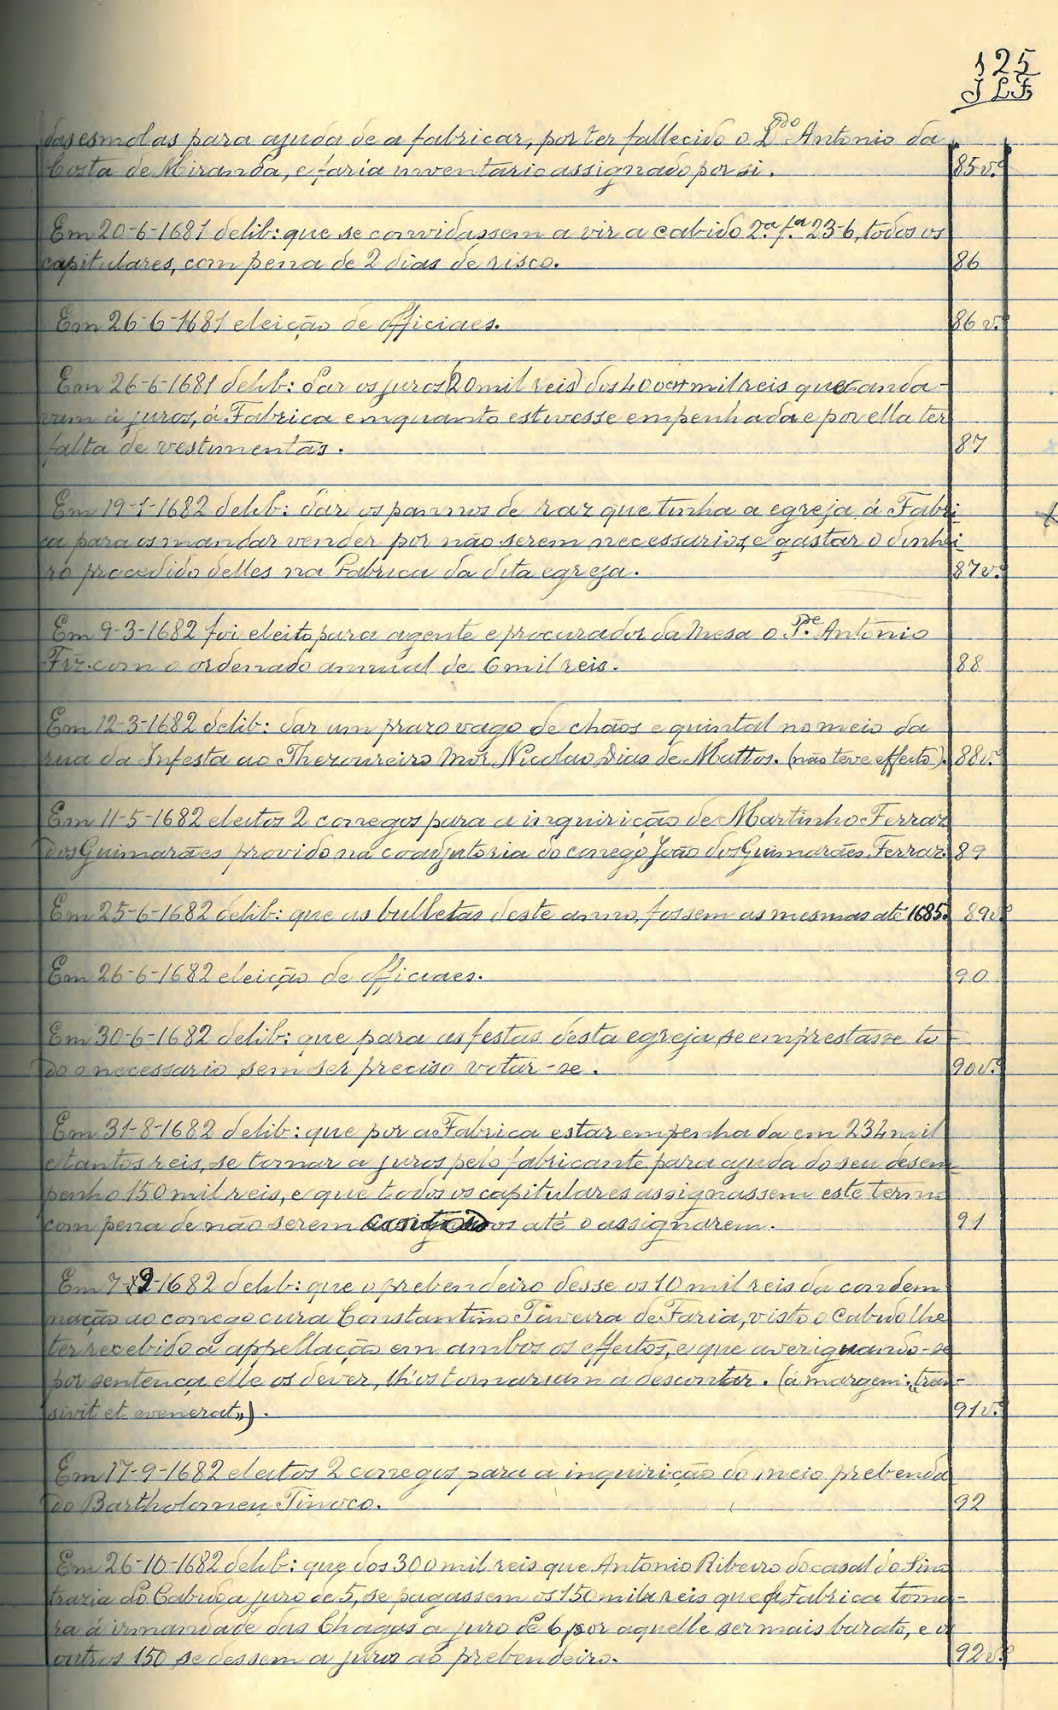 125
JLF
das esmolas para ajuda de a fabricar, por ter fallecido o L.do Antonio da
Costa de Miranda, e faria inventario assignado por si. 85v.º
Em 20-6-1681 delib: que se convidassem a vir a cabido 2.ª f.ª 23-6, todos os
capitulares, com pena de 2 dias de risco. 86
Em 26-6-1681 eleição de officiaes. 86v.º
Em 26-6-1681 delib: dar os juros (20 mil reis) dos 400 mil reis que anda-
vam a juros, á Fabrica emquanto estivesse empenhada e por ella ter
falta de vestimentas. 87
Em 19-1-1682 delib: dar os pannos de raz que tinha a egreja á Fabri
ca para os mandar vender por não serem necessarios, e gastar o dinhei
ro procedido delles na Fabrica da dita egreja. 87v.º
Em 9-3-1682 foi eleito para agente e procurador da Mesa o P.e Antonio
Frz. com o ordenado annual de 6 mil reis. 88
Em 12-3-1682 delib: dar um prazo vago de chãos e quintal no meio da
rua da Infesta ao Thezoureiro Mór Nicolao Dias de Mattos. (não teve effeito). 88v.º
Em 11-5-1682 eleitos 2 conegos para a inquirição de Martinho Ferraz
dos Guimarães provido na coadjutoria do conego João dos Guimarães Ferraz 89
Em 25-6-1682 delib: que as bulletas deste anno, fossem as mesmas até 1685. 89v.º
Em 26-6-1682 eleição de officiaes. 90
Em 30-6-1682 delib: que para as festas desta egreja se emprestasse to-
do o necessario sem ser preciso votar-se. 90v.º
Em 31-8-1682 delib: que por a Fabrica estar empenhada em 234 mil
e tantos reis, se tomar a juros pelo fabricante para ajuda do seu desem-
penho 150 mil reis, e que todos os capitulares assignassem este termo
com pena de não serem contados até o assignarem. 91
Em 7-9-1682 delib: que o prebendeiro desse os 10 mil reis da condem
nação ao conego cura Constantino Pereira de Faria, visto o Cabido lhe
ter recebido a appellação em ambos os effeitos, e que averiguando-se
por sentença elle os dever, lh'os tornariam a descontar. (á margem: "tran-
sivit et evenerat"). 91v.º
Em 17-9-1682 eleitos 2 conegos para a inquirição do meio prebenda
do Bartholomeu Tinoco. 92
Em 26-10-1682 delib: que dos 300 mil reis que Antonio Ribeiro do casal do
trazia do Cabido a juro de 5, se pagassem os 150 mil reis que a Fabrica toma-
ra á irmandade das Chagas a juro de 6, por aquelle ser mais barato, e os
outros 150 se dessem a juros ao prebendeiro. 92v.º